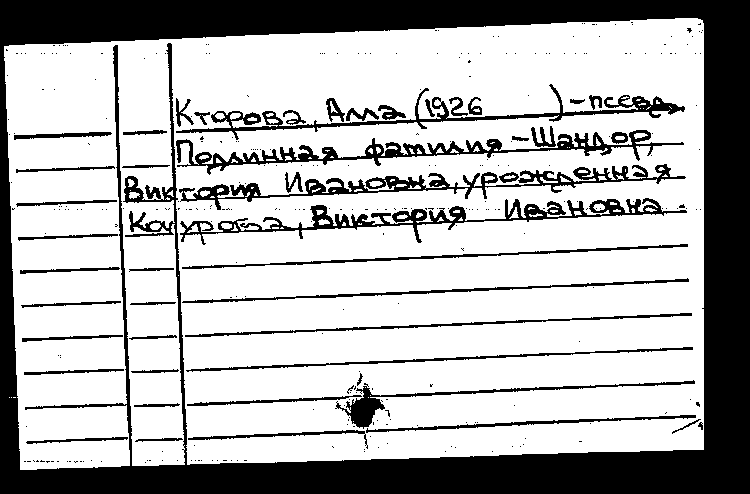 Кторова, Алла (1926 ) - псевд.
Подлинная фамилия - Шандор,
Виктория Ивановна, урожденная
Кочурова, Виктория Ивановна.